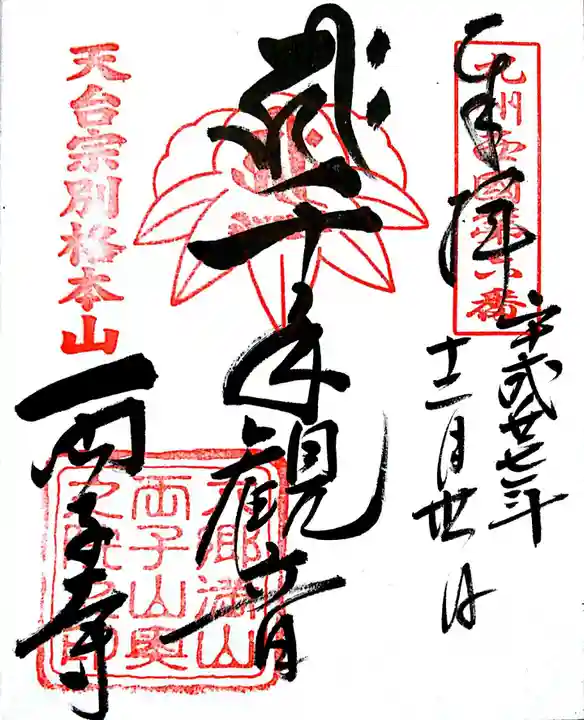 九州西国第六番
奉拝
平成廿七年
十二月廿一日
千手観音
天台宗別格本山
両子寺
六郷満山
両子山奥
之院之印